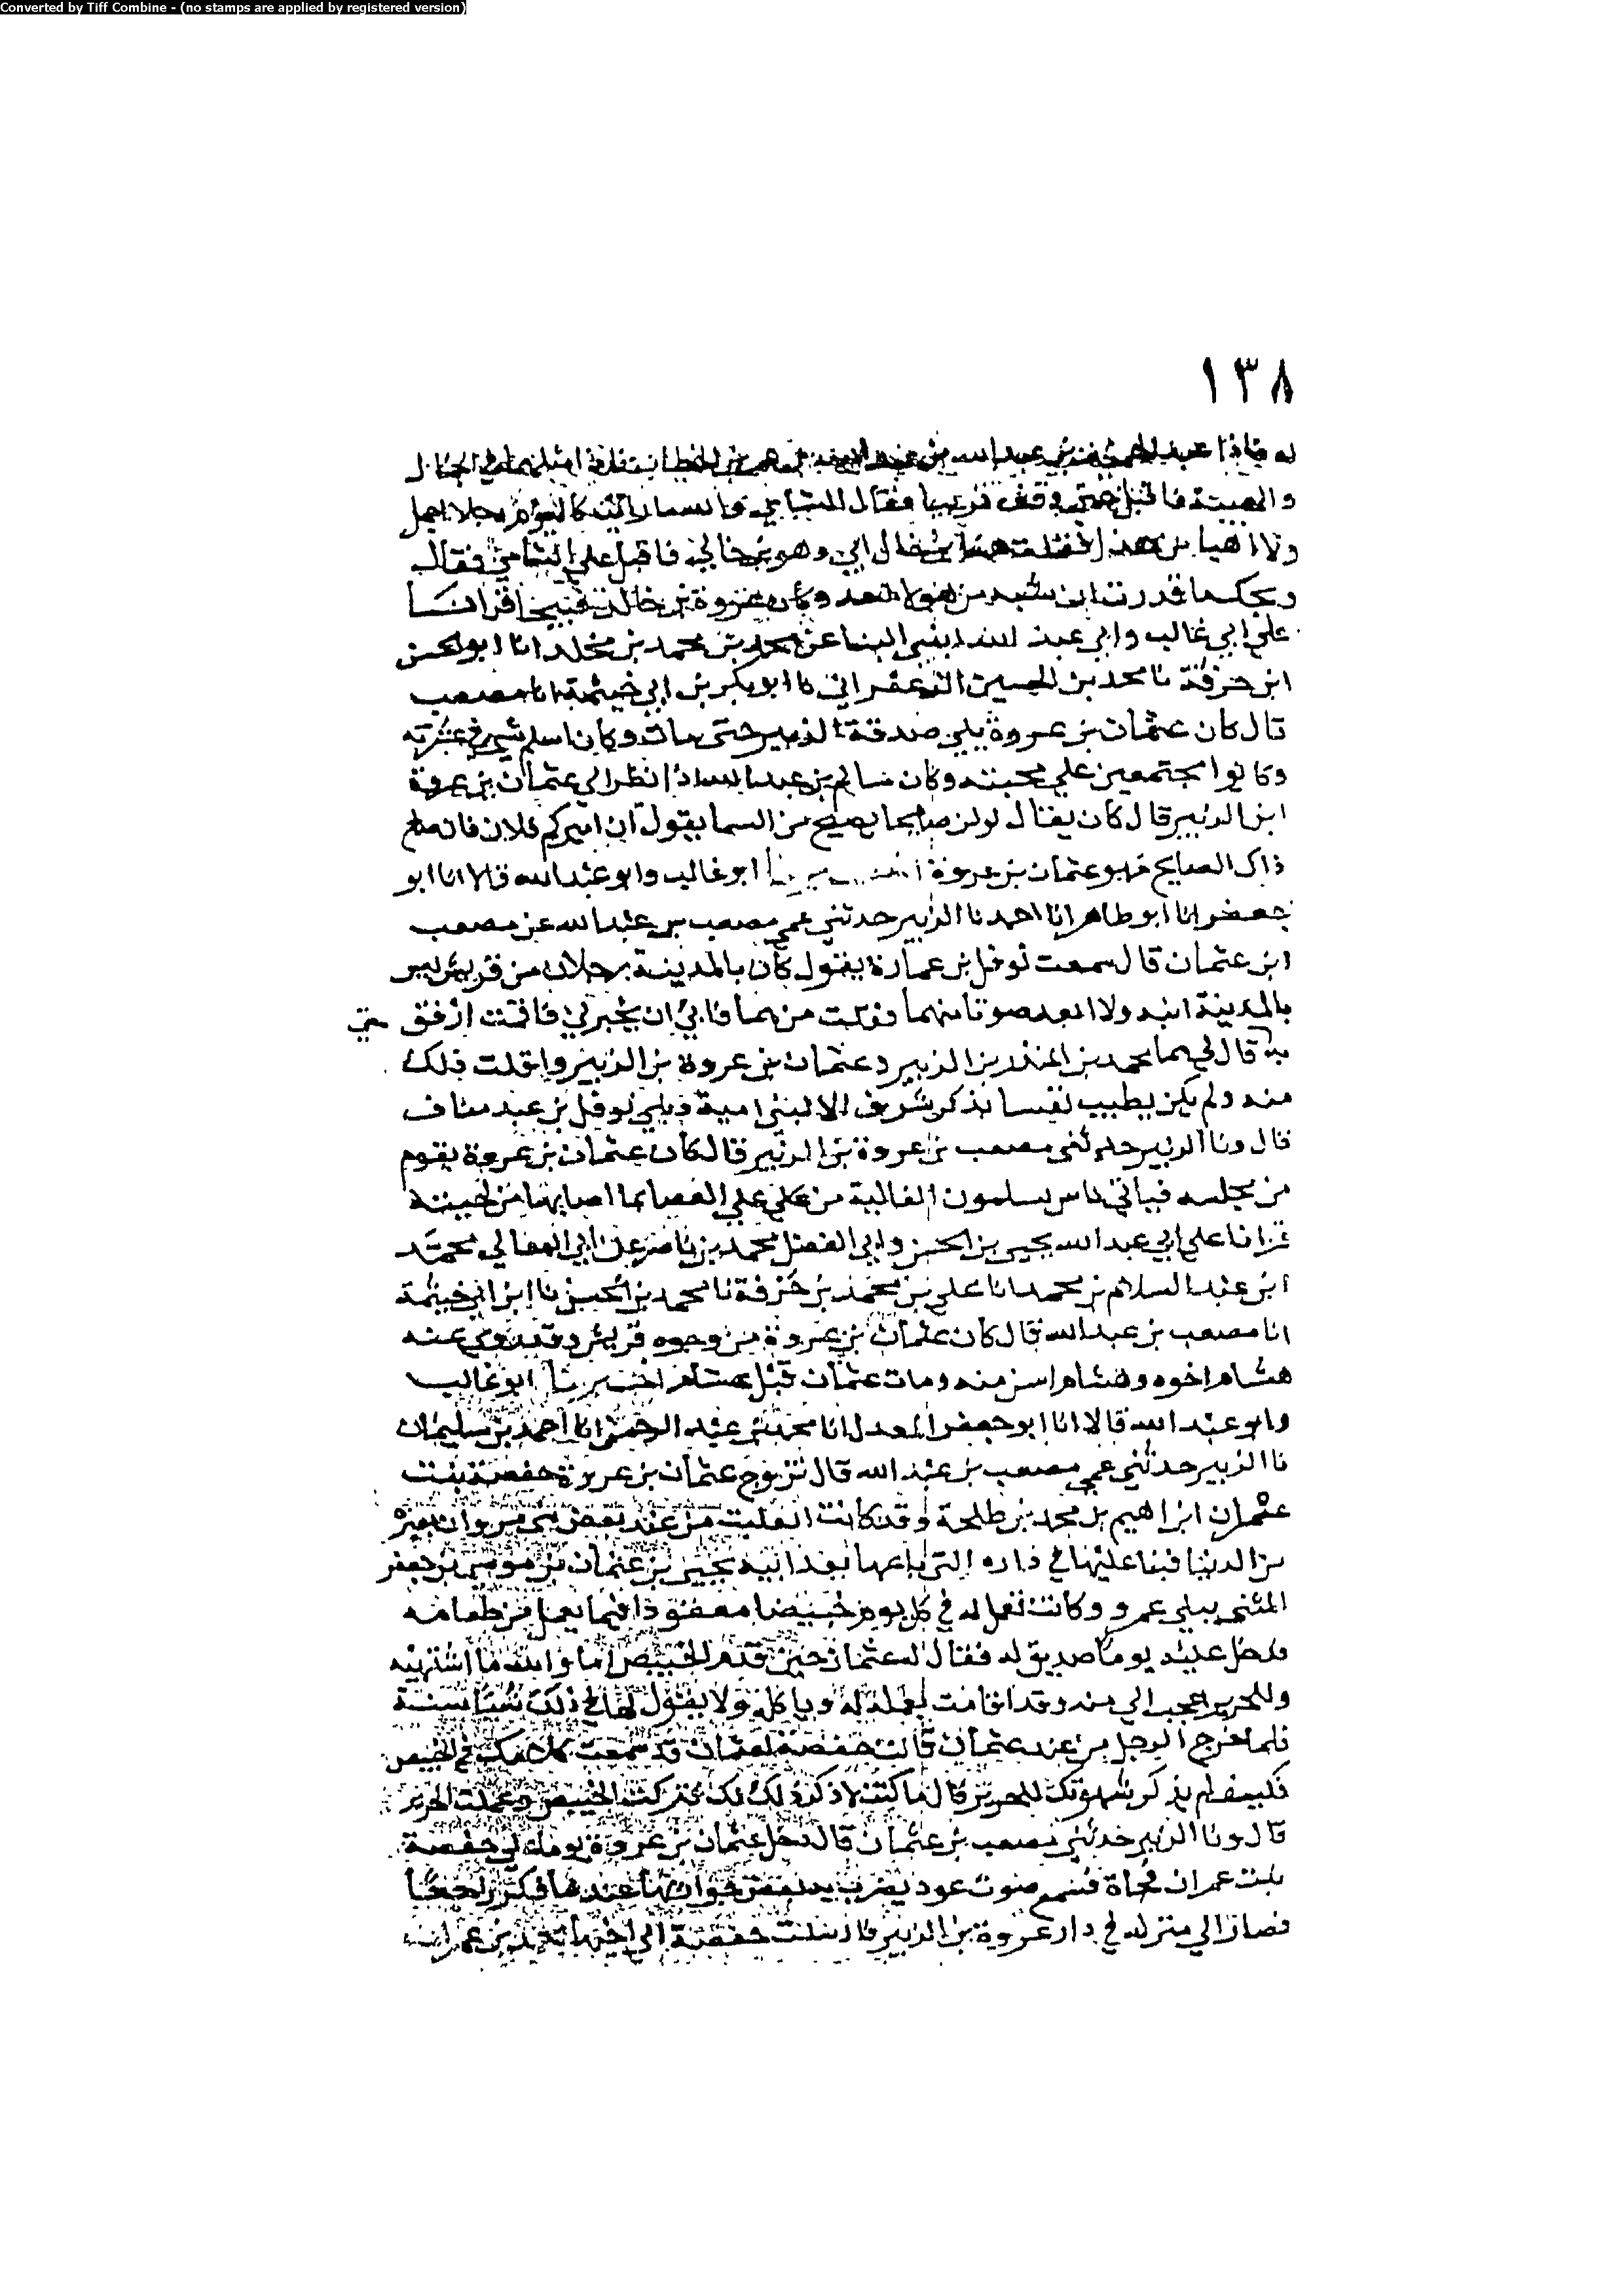 Converted by Tiff Combine - (no stamps are applied by registered version)
١٣٨
له فاذا عبد الحميد بن عبد الله بن عبد الله بن عمر بن الخطاب في الجمال
والهيبة فاقبل حتى وقف قريبا فقال الشامي والله ما رايت كاليوم رجلا اجمل
ولا اهيا من هذا فقلت هذا ابن خال ابي وهو بن خالي فاقبل علي الشامي فقال
ويحك ما قدرت ان من هولا احد وكان عروة بن خالد قبيحا قرات
علي ابي غالب وابي عبد الله ابني البنا عن محمد بن محمد بن مخلد انا ابو الحسن
ابن خزفة نا محمد بن الحسين الزعفراني نا ابو بكر بن ابي خيثمة انا مصعب
قال كان عثمان بن عروة يلي صدقة الزبير حتى مات وكان اسلم شي في عشرته
وكانوا مجتمعين علي محبته وكان سالم بن عبد الله اذا نظر الي عثمان بن عروة
ابن الزبير قال كان يقال لو ان صايحا يصيح من السما يقول ان اميركم فلان فانه
ذاك الصايح فهو عثمان بن عروة اخبرنا ابو غالب وابو عبد الله قالا انا ابو
جعفر انا ابو طاهر انا احمد نا الزبير حدثني عمي مصعب بن عبد الله عن مصعب
ابن عثمان قال سمعت نوفل بن عمارة يقول كان بالمدينة رجلان من قريش ليس
بالمدينة اندي ولا ابعد صوتا منهما فقلت من هما فابي ان يخبرني فاقمت ارفق حتي
به قال لي هما محمد بن المنذر بن الزبير وعثمان بن عروة بن الزبير ذلك
منه ولم يكن يطيب نفسا بذكر شريف الا لبني امية وبني نوفل بن عبد مناف
قال ونا الزبير حدثني مصعب بن عروة بن الزبير قال كان عثمان بن عروة يقوم
من مجلسه فياتي ناس يسلتون الغالية من علي الحصا مما اصابها من لحيته
قرانا علي ابي عبد الله يحيى بن الحسن وابي الفضل محمد بن ناصر عن ابي المعالي محمد
ابن عبد السلام بن محمد انا علي بن محمد بن خزفة نا محمد بن الحسين نا ابن ابي خيثمة
انا مصعب بن عبد الله قال كان عثمان بن عروة من وجوه قريش وقد روي عنه
هشام اخوه وهشام اسن منه ومات عثمان قبل هشام اخبرنا ابو غالب
وابو عبد الله قالا انا ابو جعفر المعدل انا محمد بن عبد الرحمن انا احمد بن سليمان
نا الزبير حدثني عمي مصعب بن عبد الله قال تزوج عثمان بن عروة حفصة بنت
عمران ابراهيم بن محمد بن طلحة وقد كانت انقلبت من عند بعض بني مروان
من الدنيا فبنا عليها في داره التي باعها بعد ابنه يحيى بن عثمان من موسى بن جعفر
وكانت تعمل له في كل يوم خبيصا معقودا فيما يعمل من طعامه
فدخل عليه يوما صديق له فقال له عثمان حين قدم الخبيص اما والله ما اشتهيه
وللحرير اعجب الي منه وقد اقامت تعمله له وياكله ولا يقول لها في ذلك شيا سنة
فلما خرج الرجل من عند عثمان قالت حفصة لعثمان قد سمعت كلامك في الخبيص
فكيف لم تذكر شهوتك للحرير قال ما كنت لاذكر ذلك لك فتركت الخبيص وعملت الحرير
قال ونا الزبير حدثني مصعب بن عثمان قال دخل عثمان بن عروة يوما علي حفصة
بنت عمران فجاة فسمع صوت عود يضرب به بعض جواريها عندها فكر راجعا
فصار الي منزله في دار عروة بن الزبير فارسلت حفصة الي اخيها محمد بن عمران